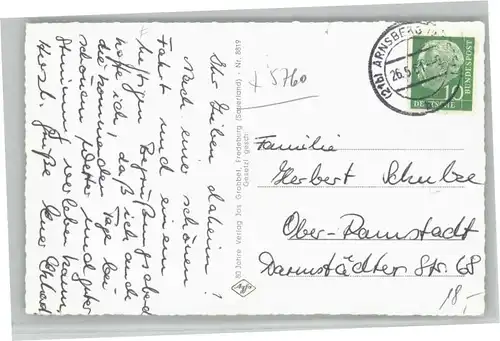 Ihr Lieben daheim!
Nach einer schönen
Fahrt und einem
lustigen Begrüßungsabend
hoffe ich, daß ich auch
die kommenden Tage bei
schönem Wetter und guter
Stimmung verleben kann.
Herzl. Grüße
80 Jahre Verlag Jos. Grobbel, Fredeburg (Sauerland) - Nr. 8819
Gesetzl. gesch.
x 5760
ARNSBERG
26.5.
10
DEUTSCHE
BUNDESPOST
Familie
Herbert Schulze
Ober-Ramstadt
Darmstädter Str. 68
18,-
Agfa